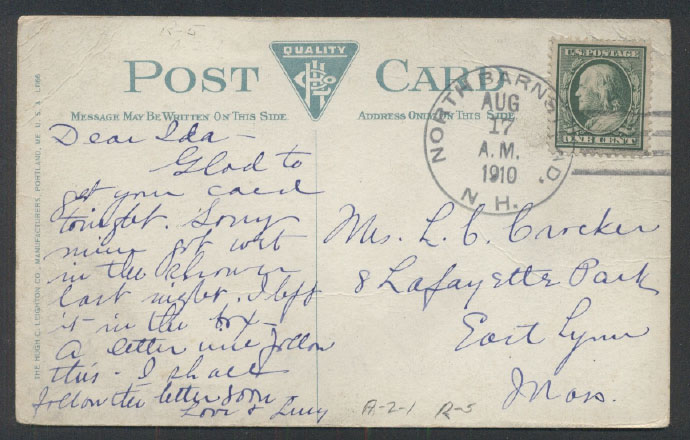 R-5
QUALITY
POST CARD
MESSAGE MAY BE WRITTEN ON THIS SIDE
ADDRESS ONLY ON THIS SIDE
THE HUGH C. LEIGHTON CO., MANUFACTURERS, PORTLAND, ME. U.S.A.
U.S. POSTAGE
ONE CENT
NORTH BARNSTEAD.
AUG
17
A.M.
1910
N.H.
Dear Ida-
Glad to
get your card
tonight. Sorry
mine got wet
in the shower
last night. I left
it in the box-
A letter will follow
this. I shall
follow the letter soon.
Love & Lucy
Mrs. L. C. Crocker
8 Lafayette Park
East Lynn
Mass.
A-2-1 R-5